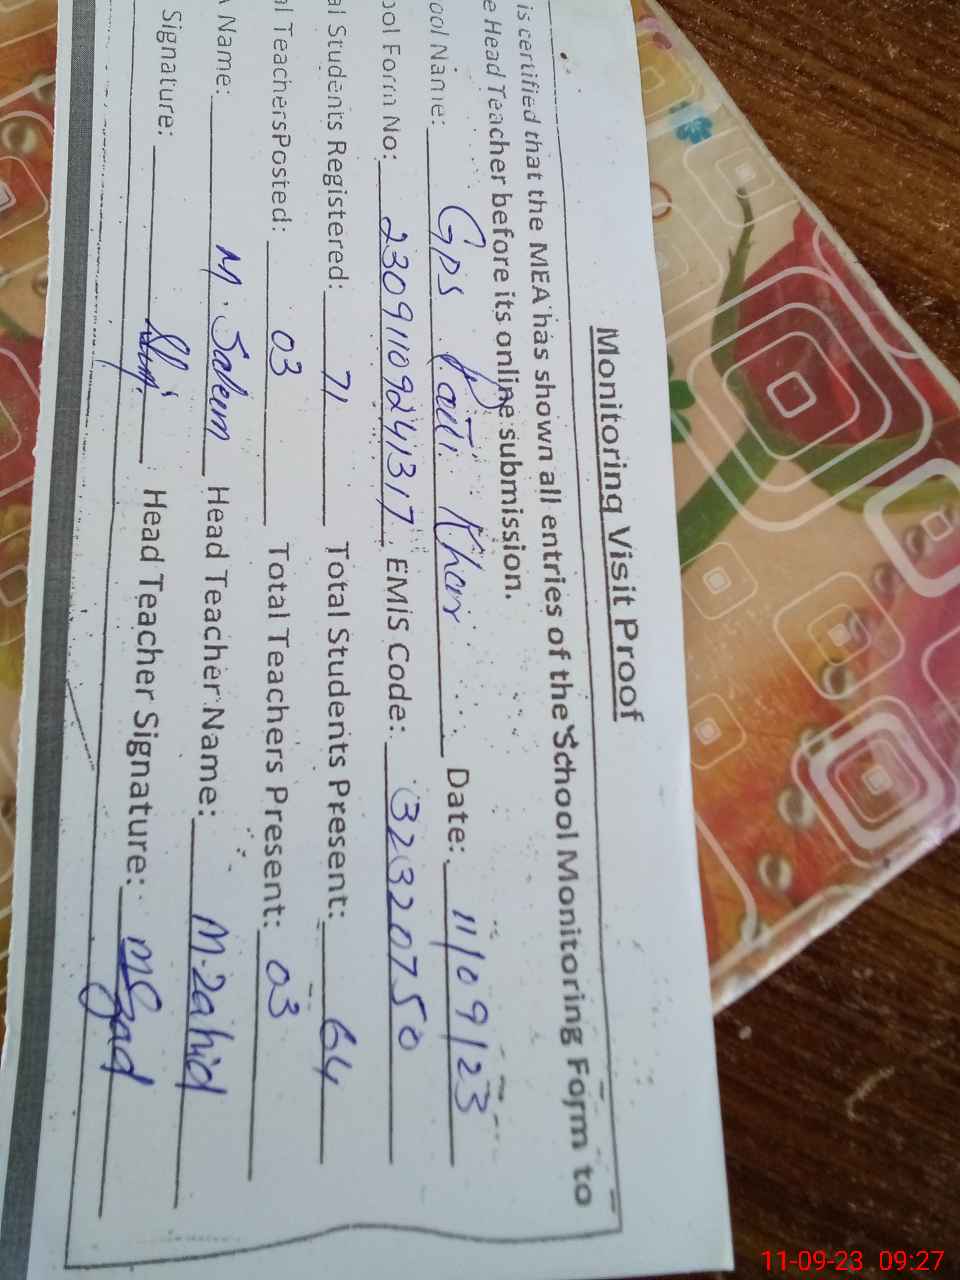 Monitoring Visit Proof
is certified that the MEA has shown all entries of the School Monitoring Form to
e Head Teacher before its online submission.
ool Name: GPS Khan Date: 11/09/23
ool Form No: 23091109241317 EMIS Code: 32320750
al Students Registered: 71 Total Students Present: 64
al TeachersPosted: 03 Total Teachers Present: 03
A Name: M. Saleem Head Teacher Name: M. Zahid
Signature: Head Teacher Signature:
11-09-23 09:27